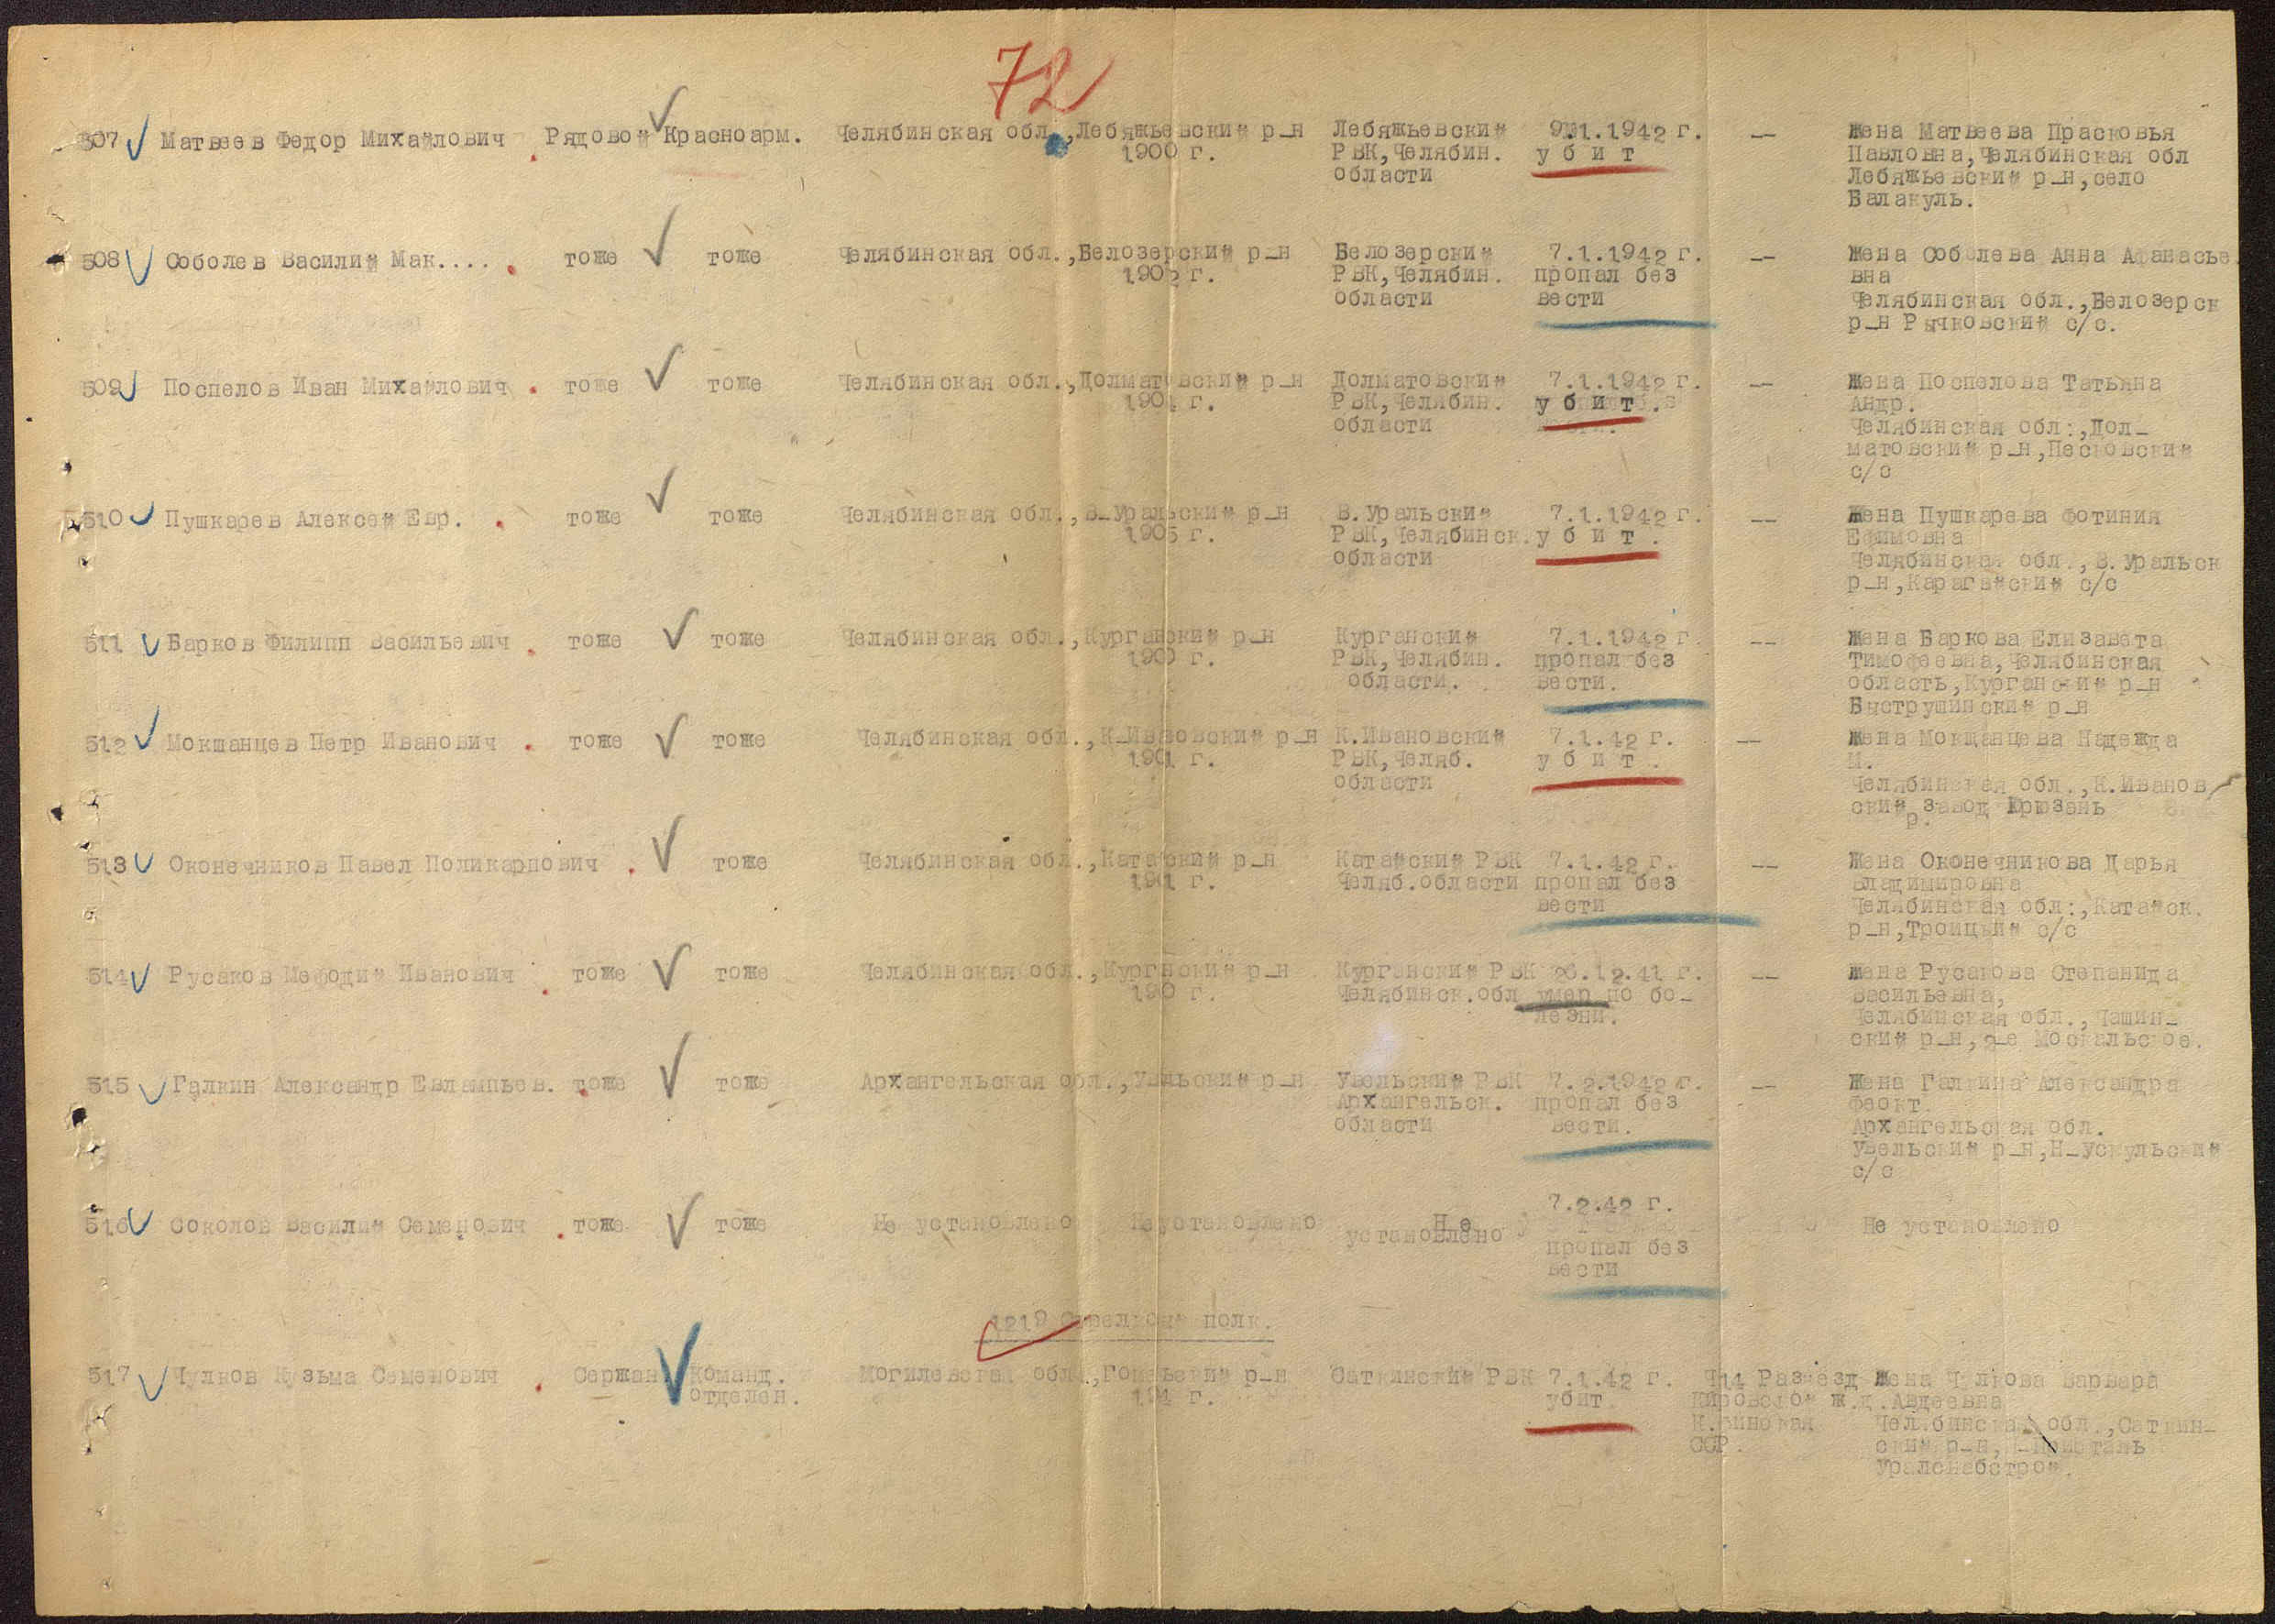 72
507 Матвеев Федор Михайлович Рядовой Красноарм. Челябинская обл., Лебяжьевский р-н Лебяжьевский 1.1942 г. -- Жена Матвеева Прасковья
1900 г. РВК, Челябин. у б и т Павловна, Челябинская обл
области Лебяжьевский р-н, село
Балакуль.
508 Соболев Василий Мак.... тоже тоже Челябинская обл., Белозерский р-н Белозерский 7.1.1942 г. -- Жена Соболева Анна Афанасье
1902 г. РВК, Челябин. пропал без вна
области вести Челябинская обл., Белозерск
р-н Рычковский с/с.
509 Поспелов Иван Михайлович тоже тоже Челябинская обл., Долматовский р-н Долматовский 7.1.1942 г. -- Жена Поспелова Татьяна
г. РВК, Челябин. у б и т . Андр.
области Челябинская обл., Дол-
матовский р-н, Песковский
с/с
510 Пушкарев Алексей Евр. тоже тоже Челябинская обл., В-Уральский р-н В.Уральский 7.1.1942 г. -- Жена Пушкарева Фотиния
1905 г. РВК, Челябинск. у б и т . Ефимовна
области Челябинская обл., В.Уральск
р-н, Карагайский с/с
511 Барков Филипп Васильевич тоже тоже Челябинская обл., Курганский р-н Курганский 7.1.1942 г. -- Жена Баркова Елизавета
1900 г. РВК, Челябин. пропал без Тимофеевна, Челябинская
области. вести. область, Курганский р-н
Быструшинский р-н
512 Мокшанцев Петр Иванович тоже тоже Челябинская обл., К-Ивановский р-н К.Ивановский 7.1.42 г. -- Жена Мокшанцева Надежда
г. РВК, Челяб. у б и т . М.
области Челябинская обл., К.Иванов
ский р. завод Юрюзань
513 Оконечников Павел Поликарпович тоже Челябинская обл., Катайский р-н Катайский РВК 7.1.42 г. -- Жена Оконечникова Дарья
г. Челяб.области пропал без Владимировна
вести Челябинская обл., Катайск.
р-н, Троицкий с/с
514 Русаков Мефодий Иванович тоже тоже Челябинская обл., Курганский р-н Курганский РВК 26.12.41 г. -- Жена Русакова Степанида
г. Челябинск.обл умер по бо- Васильевна,
лезни. Челябинская обл., Чашин-
ский р-н, Москальское.
515 Галкин Александр Евлампьев. тоже тоже Архангельская обл., Увельский р-н Увельский РВК 7.2.1942 г. -- Жена Галкина Александра
Архангельск. пропал без Феокт.
области вести. Архангельская обл.
Увельский р-н, Н-Ускульский
с/с
7.2.42 г.
516 Соколов Василий Семенович тоже тоже Не установлено Не установлено Не Не установлено
установлено
пропал без
вести
1219 Стрелковый полк.
517 Чулков Кузьма Семенович Сержант Команд. Могилевская обл., Гомельский р-н Саткинский РВК 7.1.42 г. 14 Разъезд Жена Чулкова Варвара
отделен. г. убит Кировской ж.д. Авдеевна
К.Финская Челябинская обл., Саткин-
ССР. ский р-н,
Уралснабстрой.